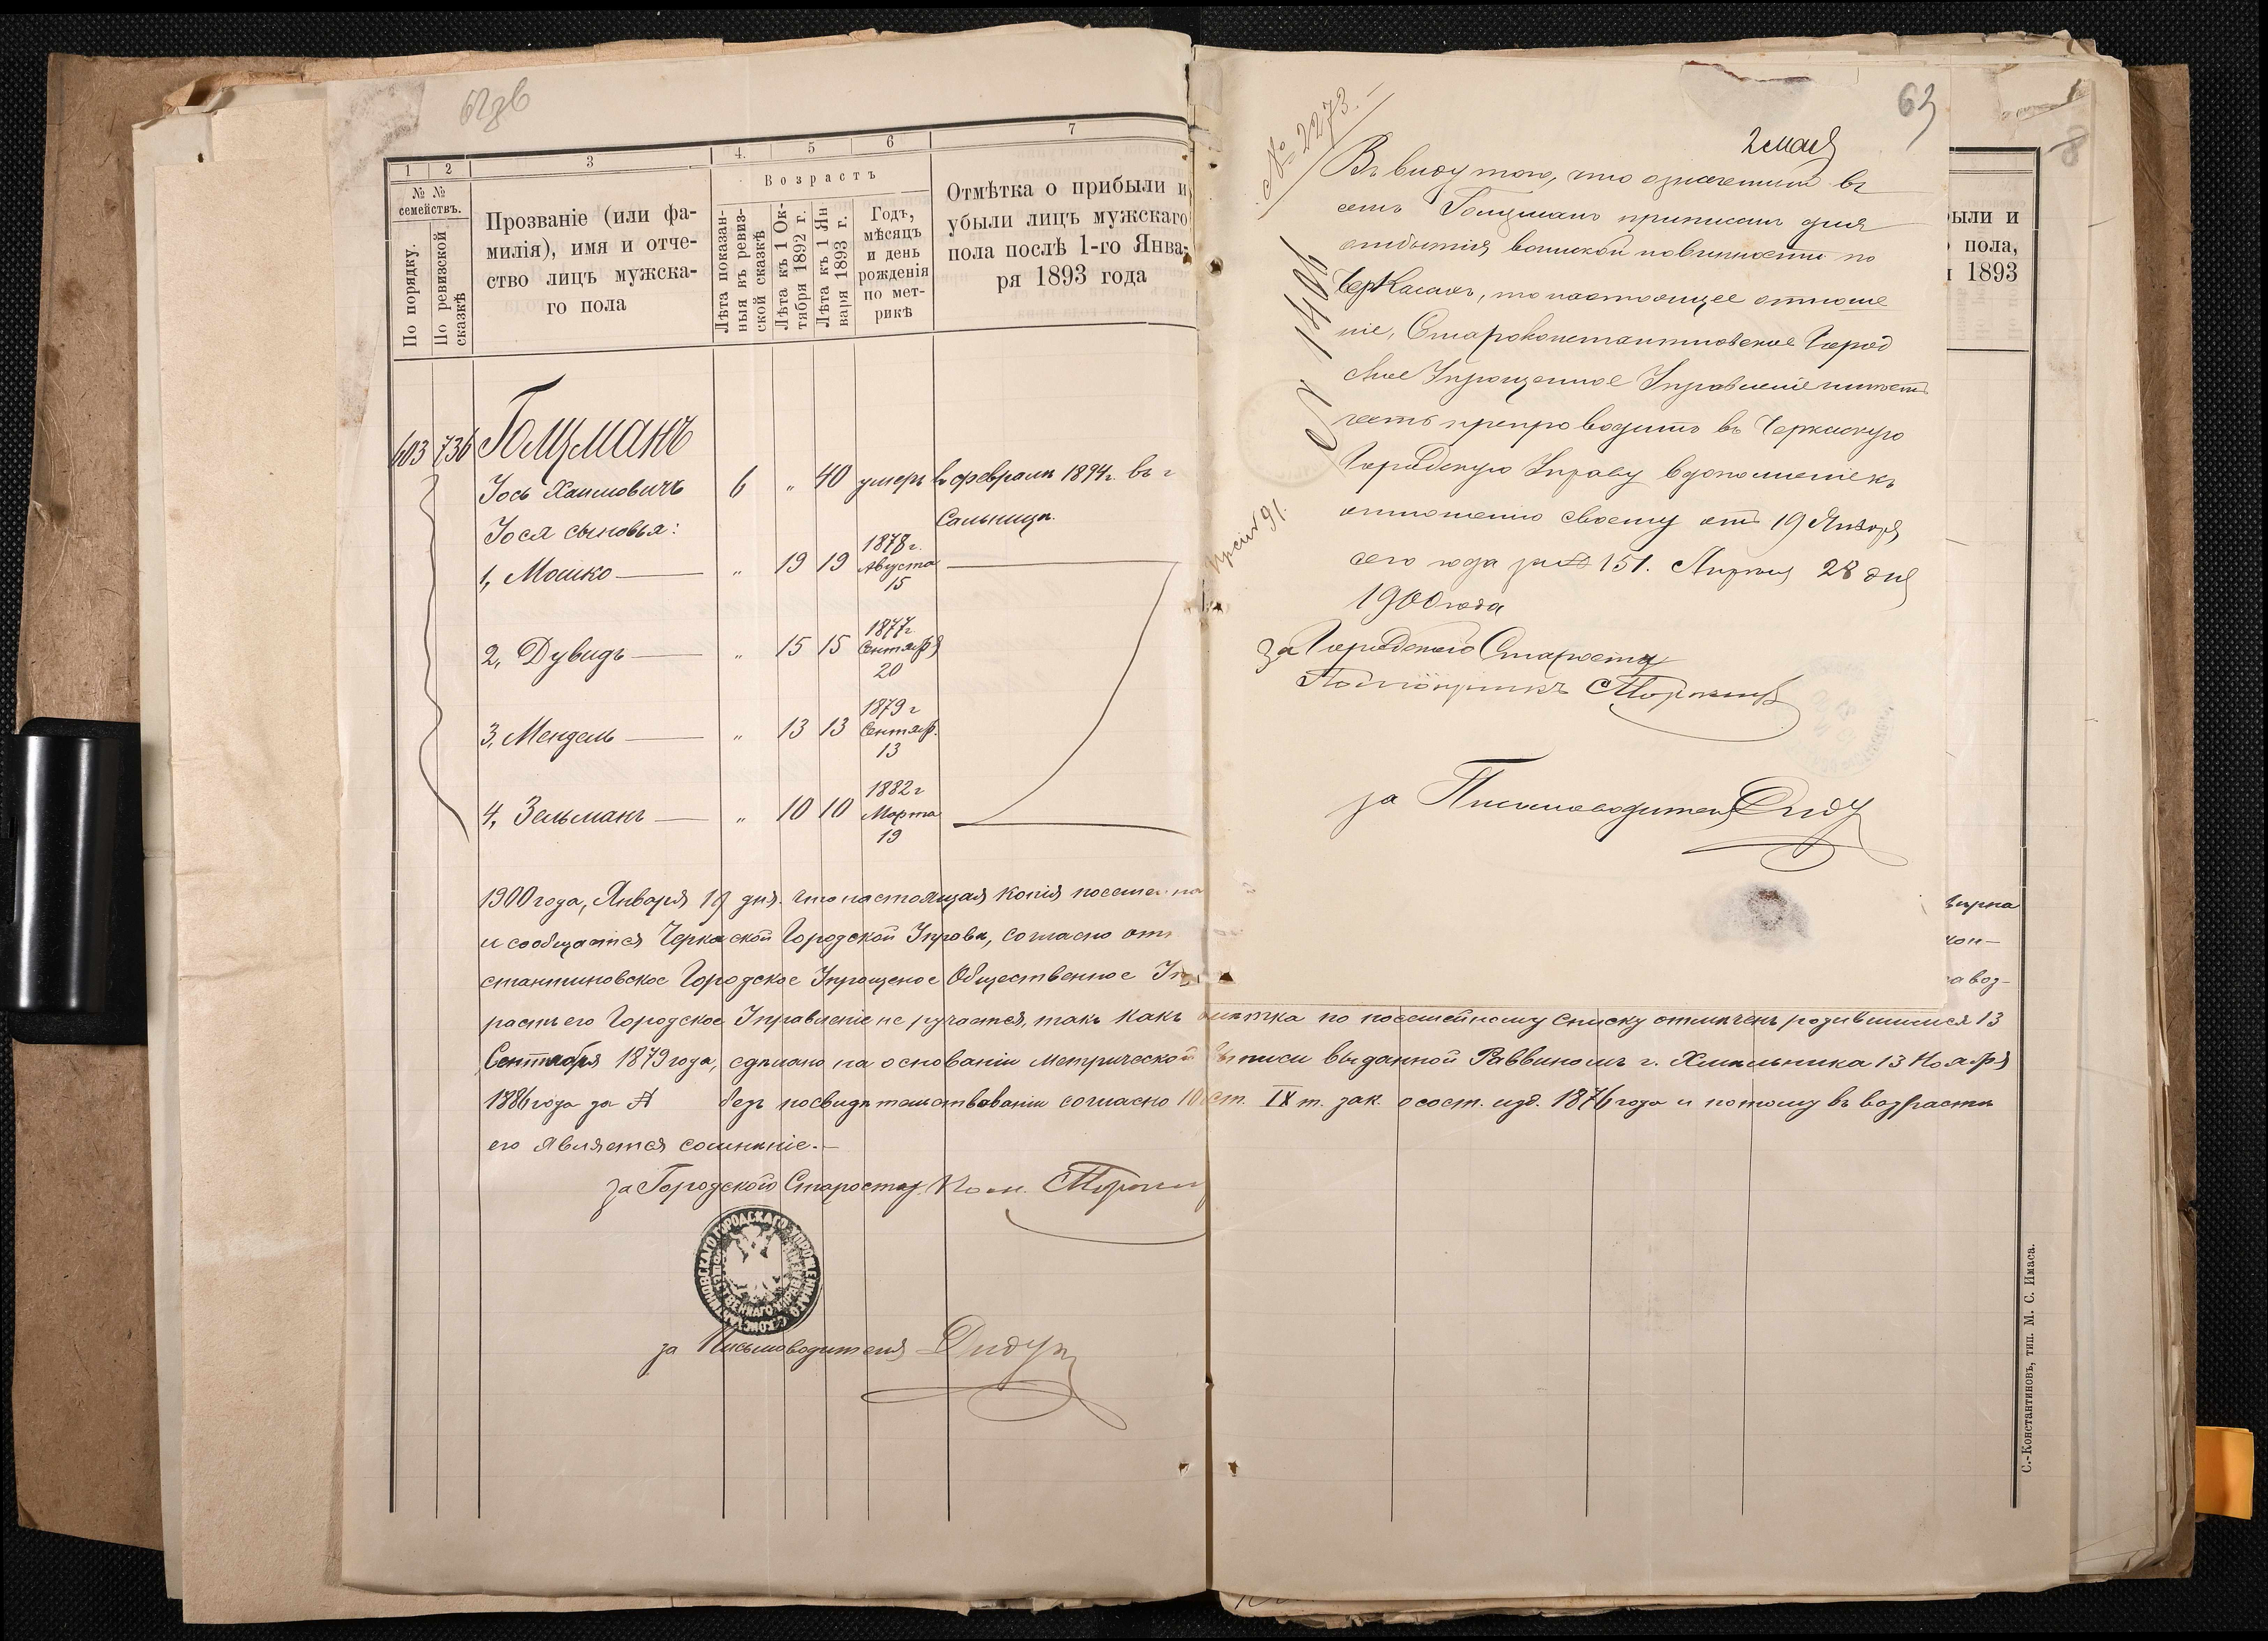 62об
1 2 3 4. 5 6 7
№ №
семействъ.
По порядку.
По ревизской
сказкѣ
Прозваніе (или фа-
милія), имя и отче-
ство лицъ мужска-
го пола
Возрастъ
Лѣта показан-
ныя въ ревиз-
ской сказкѣ
Лѣта къ 1 Ок-
тября 1892 г.
Лѣта къ 1 Ян
варя 1893 г.
Годъ,
мѣсяцъ
и день
рожденія
по мет-
рикѣ
Отмѣтка о прибыли и
убыли лицъ мужскаго
пола послѣ 1-го Янва-
ря 1893 года
603 736 Голцманъ
Іось Хаимовичъ 6 „ 40 умеръ въ февралѣ 1894г. въ г
Сальницѣ.
Іося сыновья:
1, Мошко — „ 19 19 1878 г. Августа 15
2, Дувидъ — „ 15 15 1877 г Сентябр 20
3, Мендель — „ 13 13 1879 г Сентябр. 13
4, Зельманъ — „ 10 10 1882 г Марта 19
1900 года, Января 19 дня. что настоящая копія посемей на
и сообщается Черкаской Городской Управѣ, согласно отн
стантиновское Городское Упрощеное Общественное Уп
растъ его Городское Управленіе не ручается, такъ какъ отмѣтка по посемейному списку отмѣченъ родившимся 13
Сентября 1879 года, сдѣлано на основаніи метрической выписи выданной Раввиномъ г. Хмѣльника 13 Ноября
1886 года за № безъ посвидѣтельствованія согласно 10 ст. IX т. зак. о сост. изд. 1876 года и потому въ возрастѣ
его является сомнѣніе.—
за Городского Старосту Пом.
за Письмоводителя
С.-Константиновъ, тип. М. С. Имаса.
63
№ 2273.
2 мая
Въ виду того, что означенный въ
семъ Голцманъ приписанъ для
отбытія воинской повинности по
Черкасамъ, то настоящее отноше
ніе, Староконстантиновское Город
ское Упрощенное Управленіе имѣетъ
честь препроводить въ Черкаскую
Городскую Управу въ дополненіе къ
отношенію своему отъ 19 Января
сего года за № 151. Апрѣля 28 дня
1900 года
За Городского Старосту
за Письмоводителя
ыли и
пола,
1893
вѣрна
кон-
за воз-